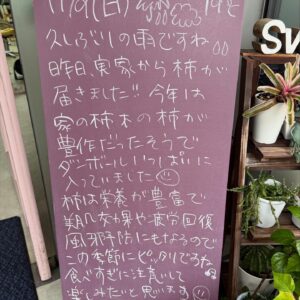 11/9(日)
久しぶりの雨ですね
昨日、実家から柿が
届きました!! 今年は
家の柿木の柿が
豊作だったそうで
ダンボールいっぱいに
入っていました
柿は栄養が豊富で
美肌効果や疲労回復
風邪予防にもなるので
この季節にピッタリですね
食べすぎに注意して
楽しみたいと思います
Sw